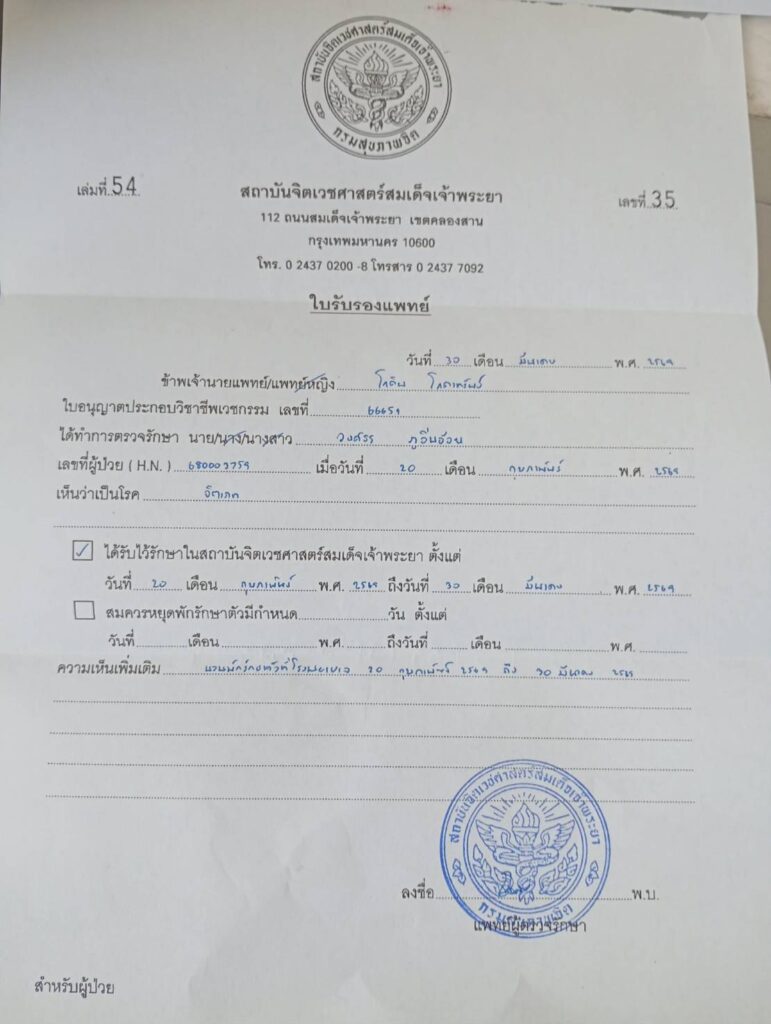 สถาบันจิตเวชศาสตร์สมเด็จเจ้าพระยา
กรมสุขภาพจิต
เล่มที่ 54
สถาบันจิตเวชศาสตร์สมเด็จเจ้าพระยา
เลขที่ 35
112 ถนนสมเด็จเจ้าพระยา เขตคลองสาน
กรุงเทพมหานคร 10600
โทร. 0 2437 0200 -8 โทรสาร 0 2437 7092
ใบรับรองแพทย์
วันที่ 30 เดือน มีนาคม พ.ศ. 2569
ข้าพเจ้านายแพทย์/แพทย์หญิง โกสิน
ใบอนุญาตประกอบวิชาชีพเวชกรรม เลขที่ 66459
ได้ทำการตรวจรักษา นาย/นาง/นางสาว
เลขที่ผู้ป่วย ( H.N. ) 680003759 เมื่อวันที่ 20 เดือน กุมภาพันธ์ พ.ศ. 2569
เห็นว่าเป็นโรค จิตเภท
ได้รับไว้รักษาในสถาบันจิตเวชศาสตร์สมเด็จเจ้าพระยา ตั้งแต่
วันที่ 20 เดือน กุมภาพันธ์ พ.ศ. 2569 ถึงวันที่ 30 เดือน มีนาคม พ.ศ. 2569
สมควรหยุดพักรักษาตัวมีกำหนด วัน ตั้งแต่
วันที่ เดือน พ.ศ. ถึงวันที่ เดือน พ.ศ.
ความเห็นเพิ่มเติม นอนพักรักษาตัวที่โรงพยาบาล 20 กุมภาพันธ์ 2569 ถึง 30 มีนาคม 2569
สถาบันจิตเวชศาสตร์สมเด็จเจ้าพระยา
กรมสุขภาพจิต
ลงชื่อ พ.บ.
แพทย์ผู้ตรวจรักษา
สำหรับผู้ป่วย